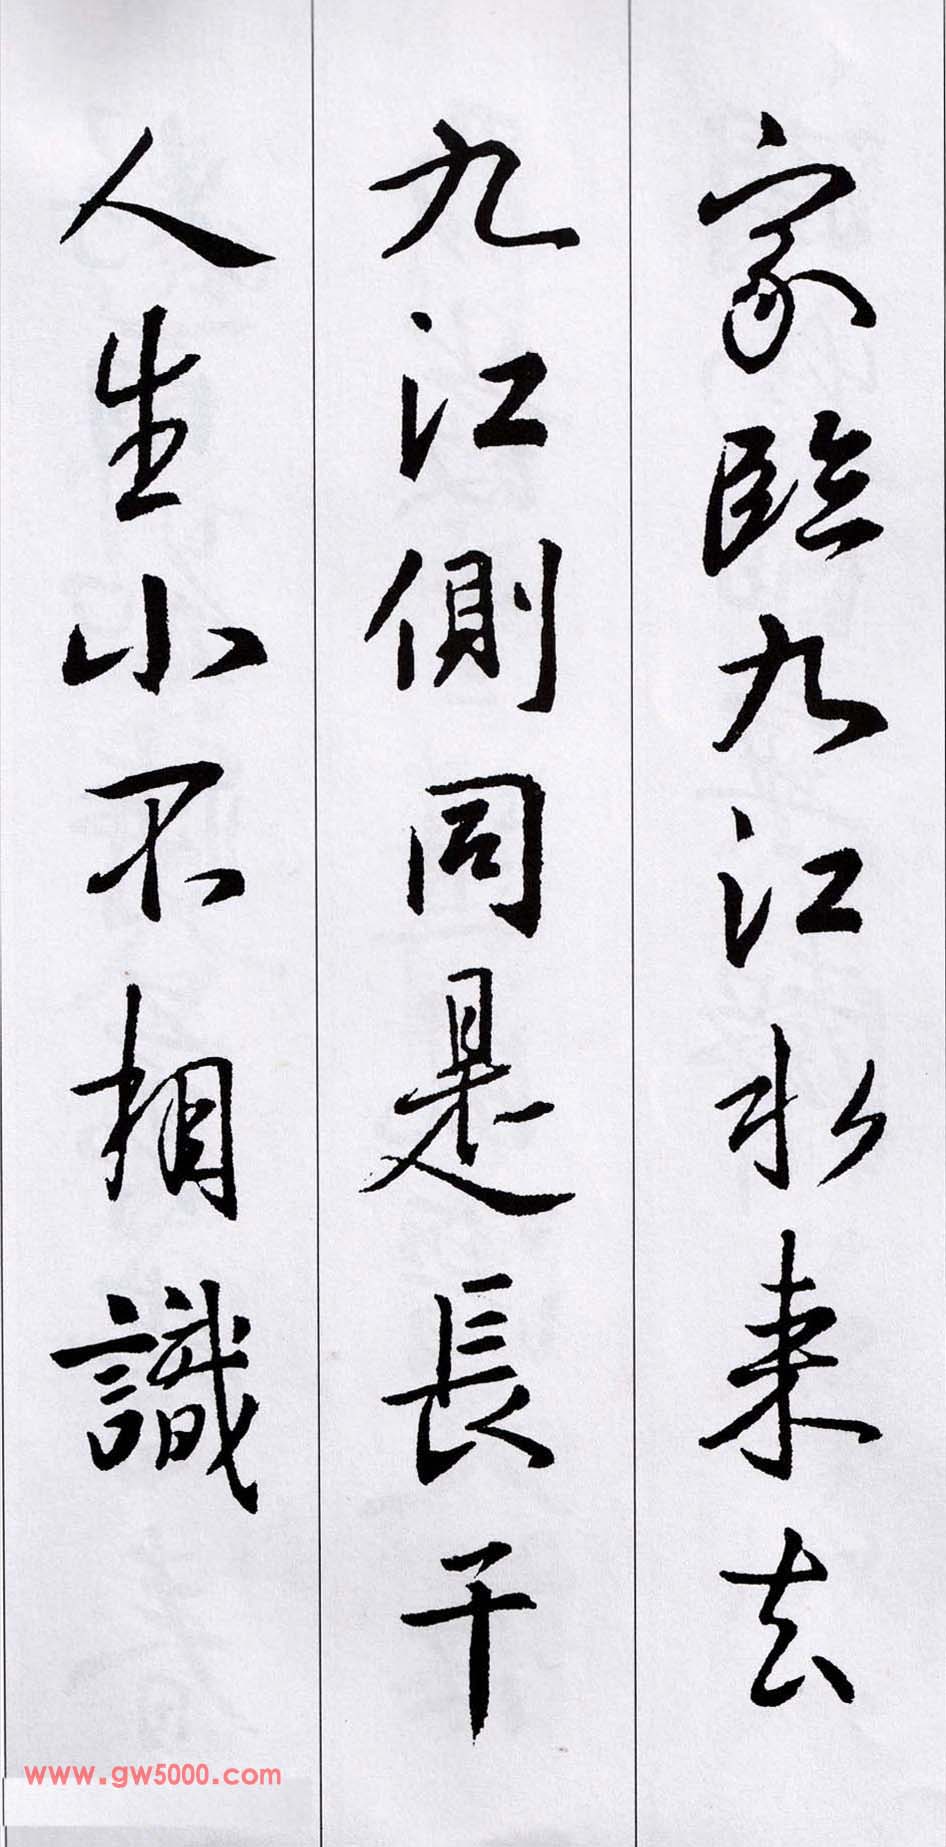 家臨九江水来去
九江側同是長干
人生小不相識
www.gw5000.com